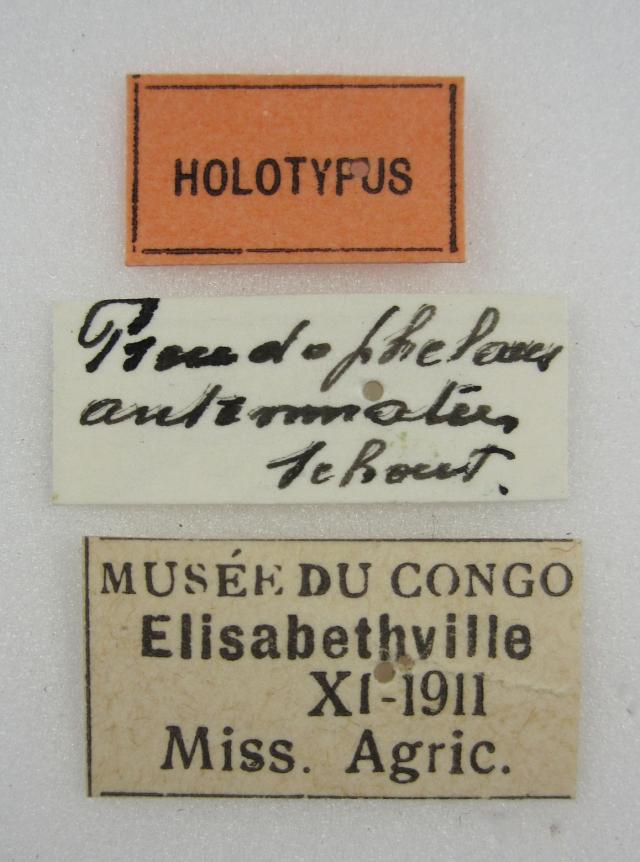 HOLOTYPUS
Pseudophelaus
antennatus
Schout.
MUSÉE DU CONGO
Elisabethville
XI-1911
Miss. Agric.